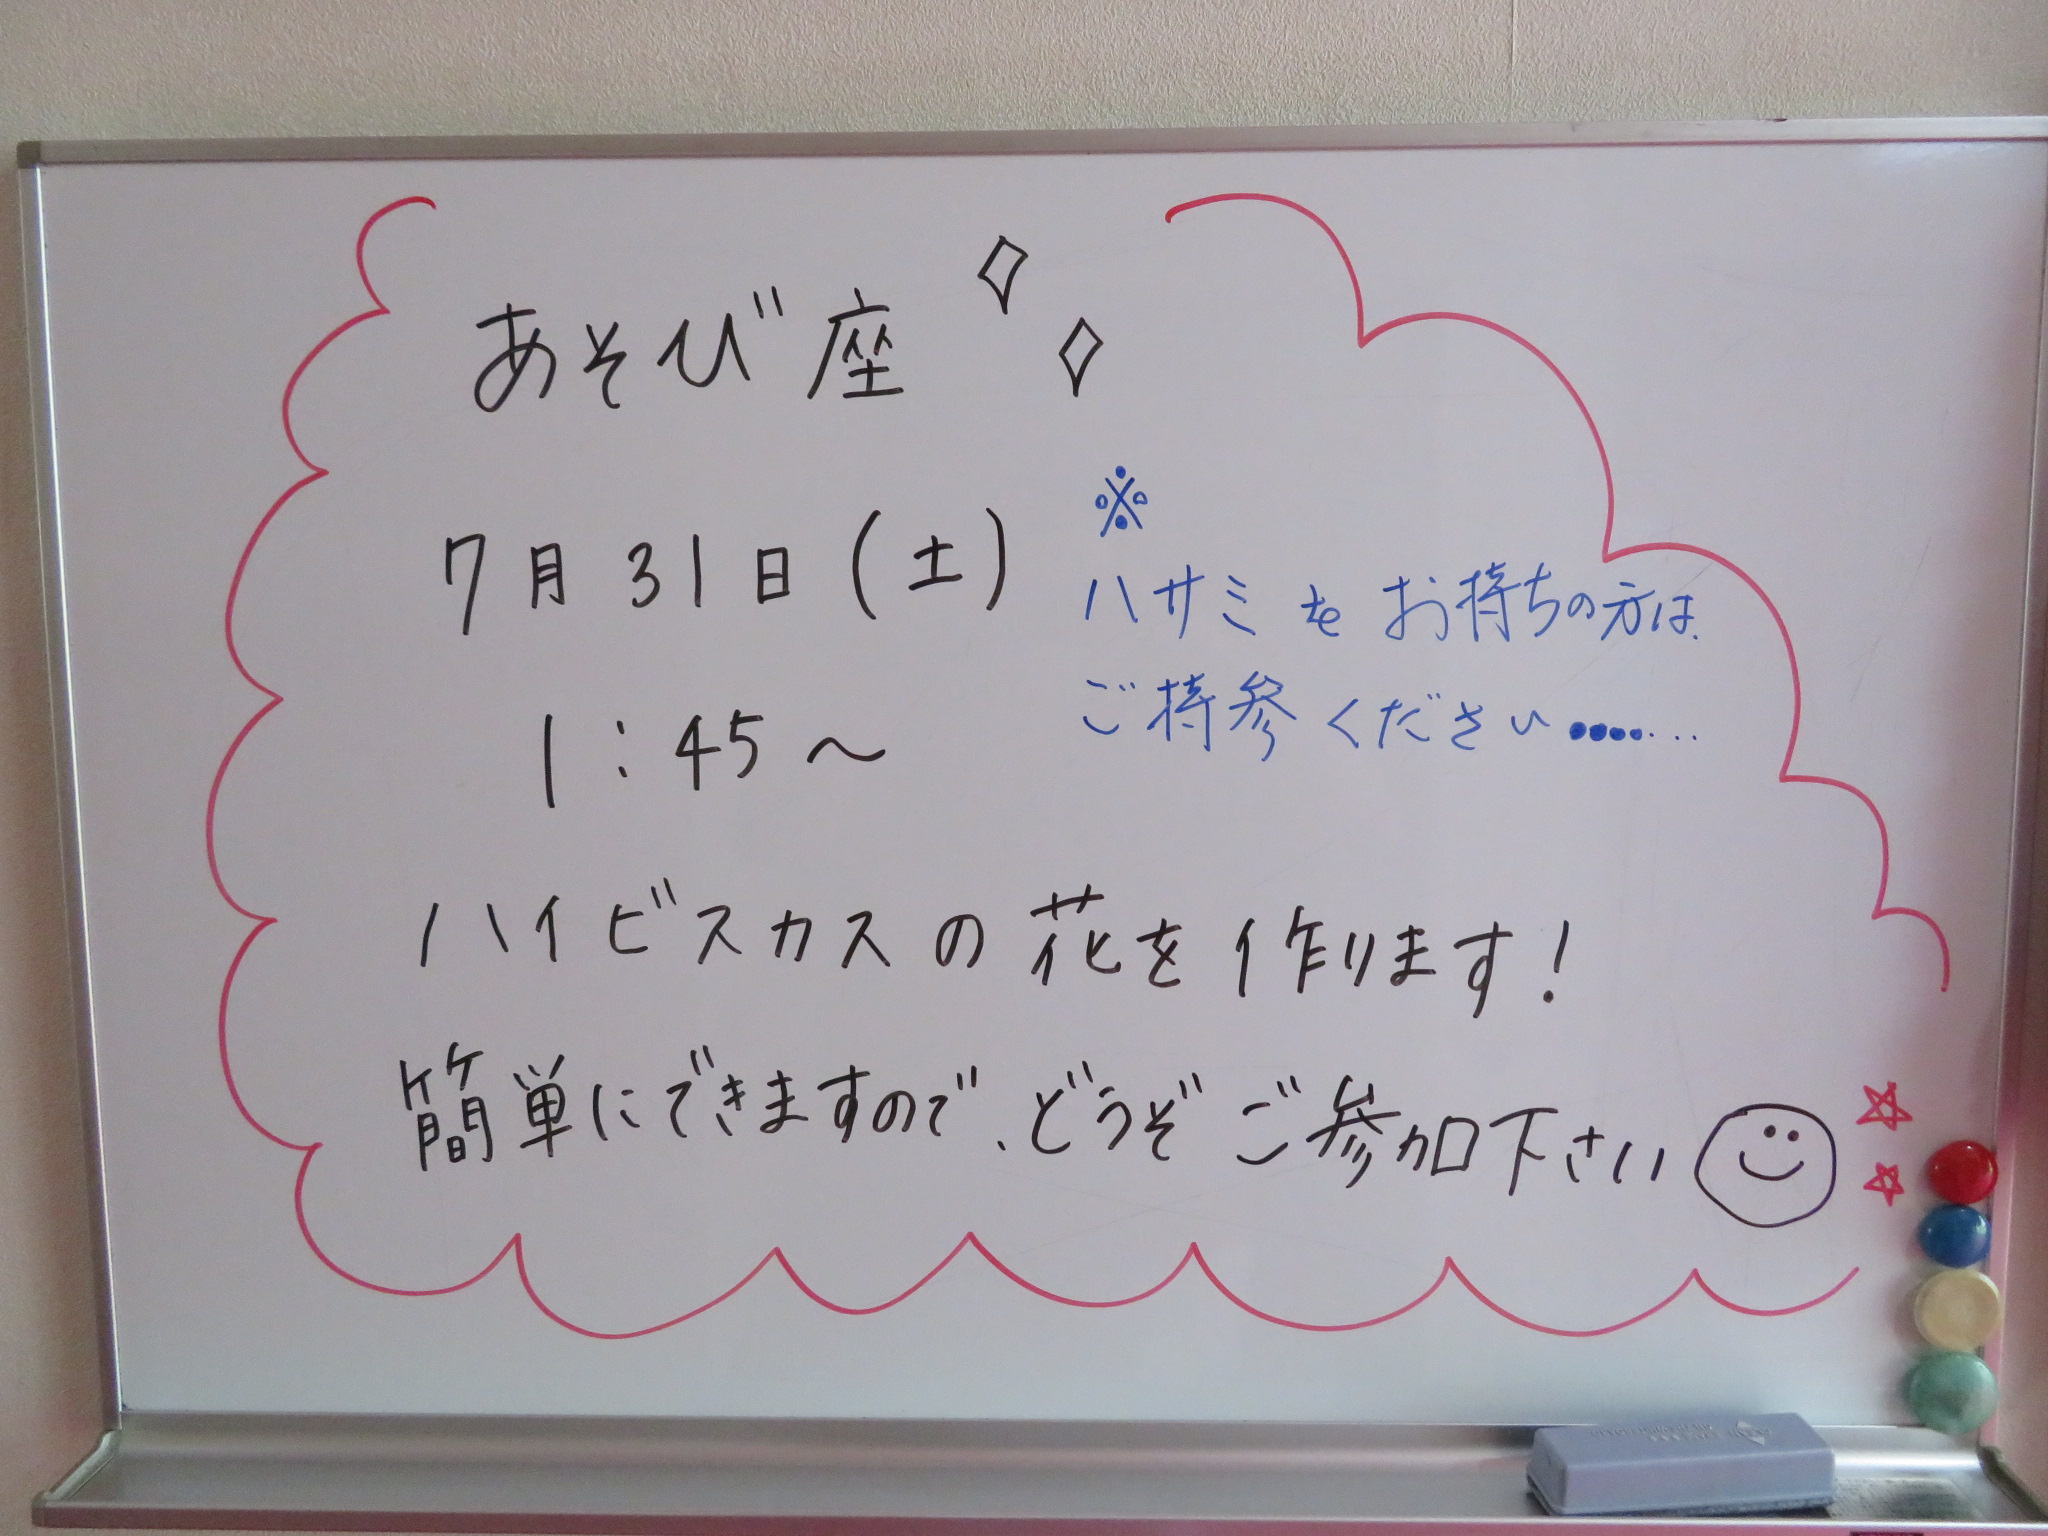 あそび座
7月31日(土)
1:45〜
※
ハサミをお持ちの方は
ご持参ください••••・・・
ハイビスカスの花を作ります!
簡単にできますので、どうぞご参加下さい